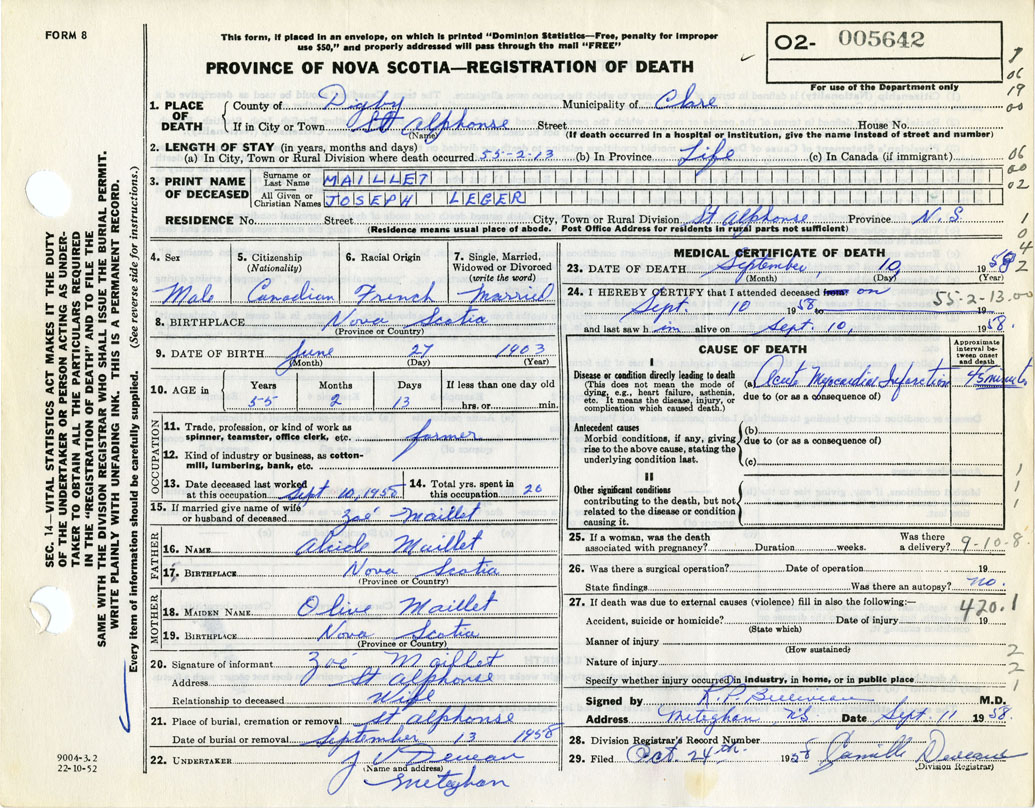 FORM 8
This form, if placed in an envelope, on which is printed "Dominion Statistics—Free, penalty for improper
use $50," and properly addressed will pass through the mail "FREE"
02- 005642
For use of the Department only
PROVINCE OF NOVA SCOTIA—REGISTRATION OF DEATH
06
19
00
06
00
02
0
4
2
1. PLACE OF DEATH { County of Digby Municipality of Clare
If in City or Town St Alphonse Street House No.
(Name) (If death occurred in a hospital or institution, give the name instead of street and number)
2. LENGTH OF STAY (in years, months and days)
(a) In City, Town or Rural Division where death occurred 55-2-13 (b) In Province Life (c) In Canada (if immigrant)
3. PRINT NAME OF DECEASED
Surname or Last Name MAILLET
All Given or Christian Names JOSEPH LEGER
RESIDENCE No. Street City, Town or Rural Division St Alphonse Province N.S
(Residence means usual place of abode. Post Office Address for residents in rural parts not sufficient)
4. Sex Male
5. Citizenship (Nationality) Canadian
6. Racial Origin French
7. Single, Married, Widowed or Divorced (write the word) Married
8. BIRTHPLACE Nova Scotia
(Province or Country)
9. DATE OF BIRTH June 27 1903
(Month) (Day) (Year)
10. AGE in Years Months Days If less than one day old
55 2 13 hrs. or min.
OCCUPATION
11. Trade, profession, or kind of work as spinner, teamster, office clerk, etc. farmer
12. Kind of industry or business, as cotton-mill, lumbering, bank, etc.
13. Date deceased last worked at this occupation Sept 10, 1958
14. Total yrs. spent in this occupation 20
15. If married give name of wife or husband of deceased Zoé Maillet
FATHER
16. NAME Alcide Maillet
17. BIRTHPLACE Nova Scotia
(Province or Country)
MOTHER
18. MAIDEN NAME Olive Maillet
19. BIRTHPLACE Nova Scotia
(Province or Country)
20. Signature of informant Zoé Maillet
Address St Alphonse
Relationship to deceased Wife
21. Place of burial, cremation or removal St Alphonse
Date of burial or removal September 13 1958
22. UNDERTAKER J V Deveau
(Name and address)
Meteghan
MEDICAL CERTIFICATE OF DEATH
23. DATE OF DEATH September, 10 1958
(Month) (Day) (Year)
24. I HEREBY CERTIFY that I attended deceased from on
Sept. 10 1958 to 19
55-2-13.00
and last saw him alive on Sept. 10, 1958.
CAUSE OF DEATH
Approximate interval between onset and death
I
Disease or condition directly leading to death
(This does not mean the mode of dying, e.g., heart failure, asthenia, etc. It means the disease, injury, or complication which caused death.)
(a) Acute Myocardial Infarction 45 minutes
due to (or as a consequence of)
Antecedent causes
Morbid conditions, if any, giving rise to the above cause, stating the underlying condition last.
(b)
due to (or as a consequence of)
(c)
II
Other significant conditions
contributing to the death, but not related to the disease or condition causing it.
1
1
1
25. If a woman, was the death associated with pregnancy? Duration weeks. Was there a delivery?
9-10-8
26. Was there a surgical operation? Date of operation 19
State findings Was there an autopsy? no.
27. If death was due to external causes (violence) fill in also the following:—
420.1
Accident, suicide or homicide? Date of injury 19
(State which)
Manner of injury
(How sustained)
Nature of injury
Specify whether injury occurred in industry, in home, or in public place
2
2
1
Signed by R.P. Belliveau M.D.
Address Meteghan N.S. Date Sept. 11 1958.
28. Division Registrar's Record Number
29. Filed Oct. 24th 1958 Camille Deveau
(Division Registrar)
SEC. 14—VITAL STATISTICS ACT MAKES IT THE DUTY
OF THE UNDERTAKER OR PERSON ACTING AS UNDER-
TAKER TO OBTAIN ALL THE PARTICULARS REQUIRED
IN THE "REGISTRATION OF DEATH" AND TO FILE THE
SAME WITH THE DIVISION REGISTRAR WHO SHALL ISSUE THE BURIAL PERMIT.
WRITE PLAINLY WITH UNFADING INK. THIS IS A PERMANENT RECORD.
Every item of information should be carefully supplied. (See reverse side for instructions.)
9004-3.2
22-10-52